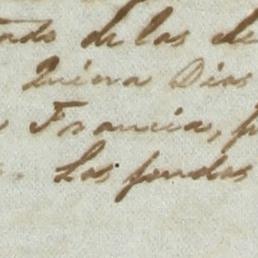 tado de las de
Quiera Dios
Francia, p
. Los fondos